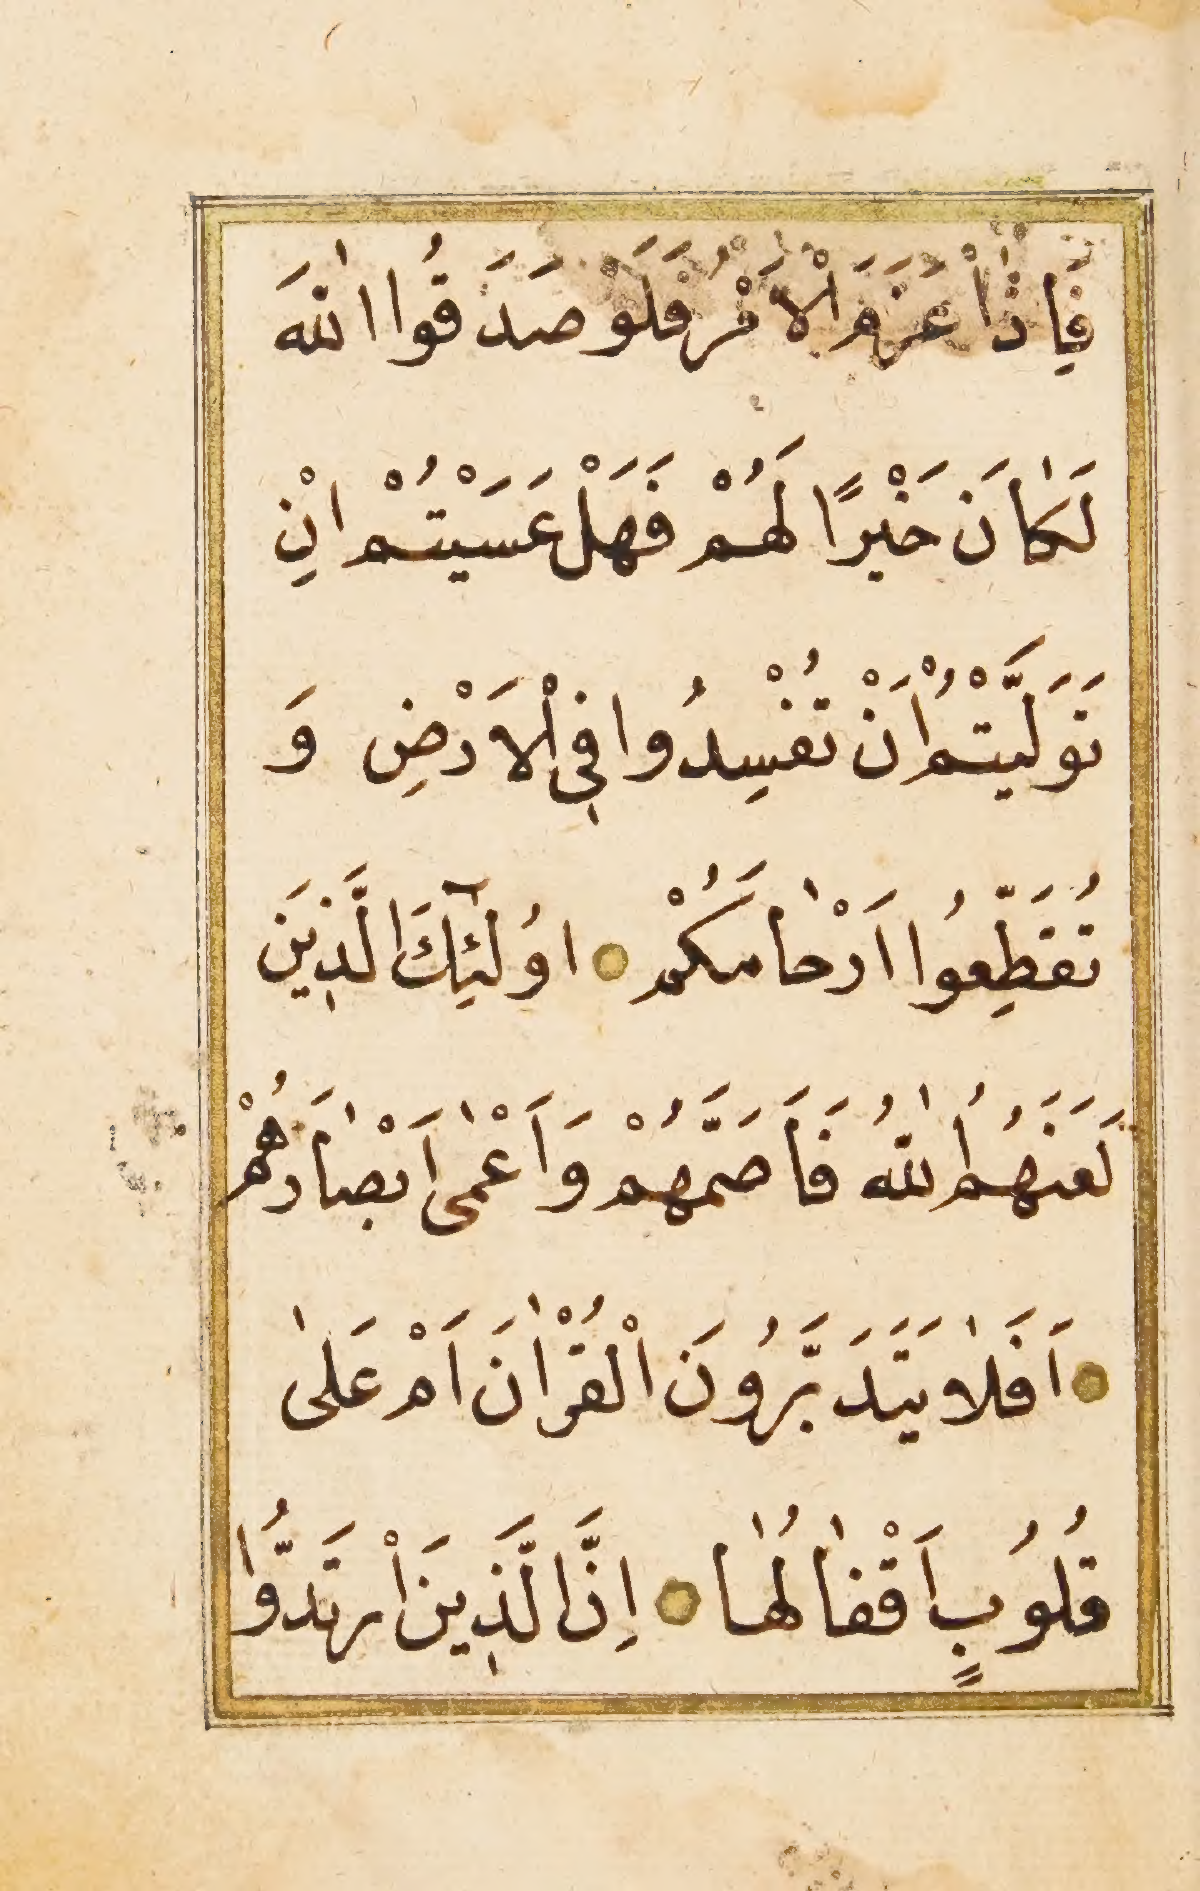 فَاِذٰا عَزَمَ الْاَمْرُ فَلَوْ صَدَقُوا اللّٰهَ
لَكٰانَ خَيْرًا لَهُمْ فَهَلْ عَسَيْتُمْ اِنْ
تَوَلَّيْتُمْ اَنْ تُفْسِدُوا فِي الْاَرْضِ وَ
تُقَطِّعُوا اَرْحٰامَكُمْ ۝ اُولٰئِكَ الَّذِينَ
لَعَنَهُمُ اللّٰهُ فَاَصَمَّهُمْ وَاَعْمىٰ اَبْصٰارَهُمْ
۝ اَفَلاٰ يَتَدَبَّرُونَ الْقُرْاٰنَ اَمْ عَلىٰ
قُلُوبٍ اَقْفٰالُهٰا ۝ اِنَّ الَّذِينَ ارْتَدُّوا